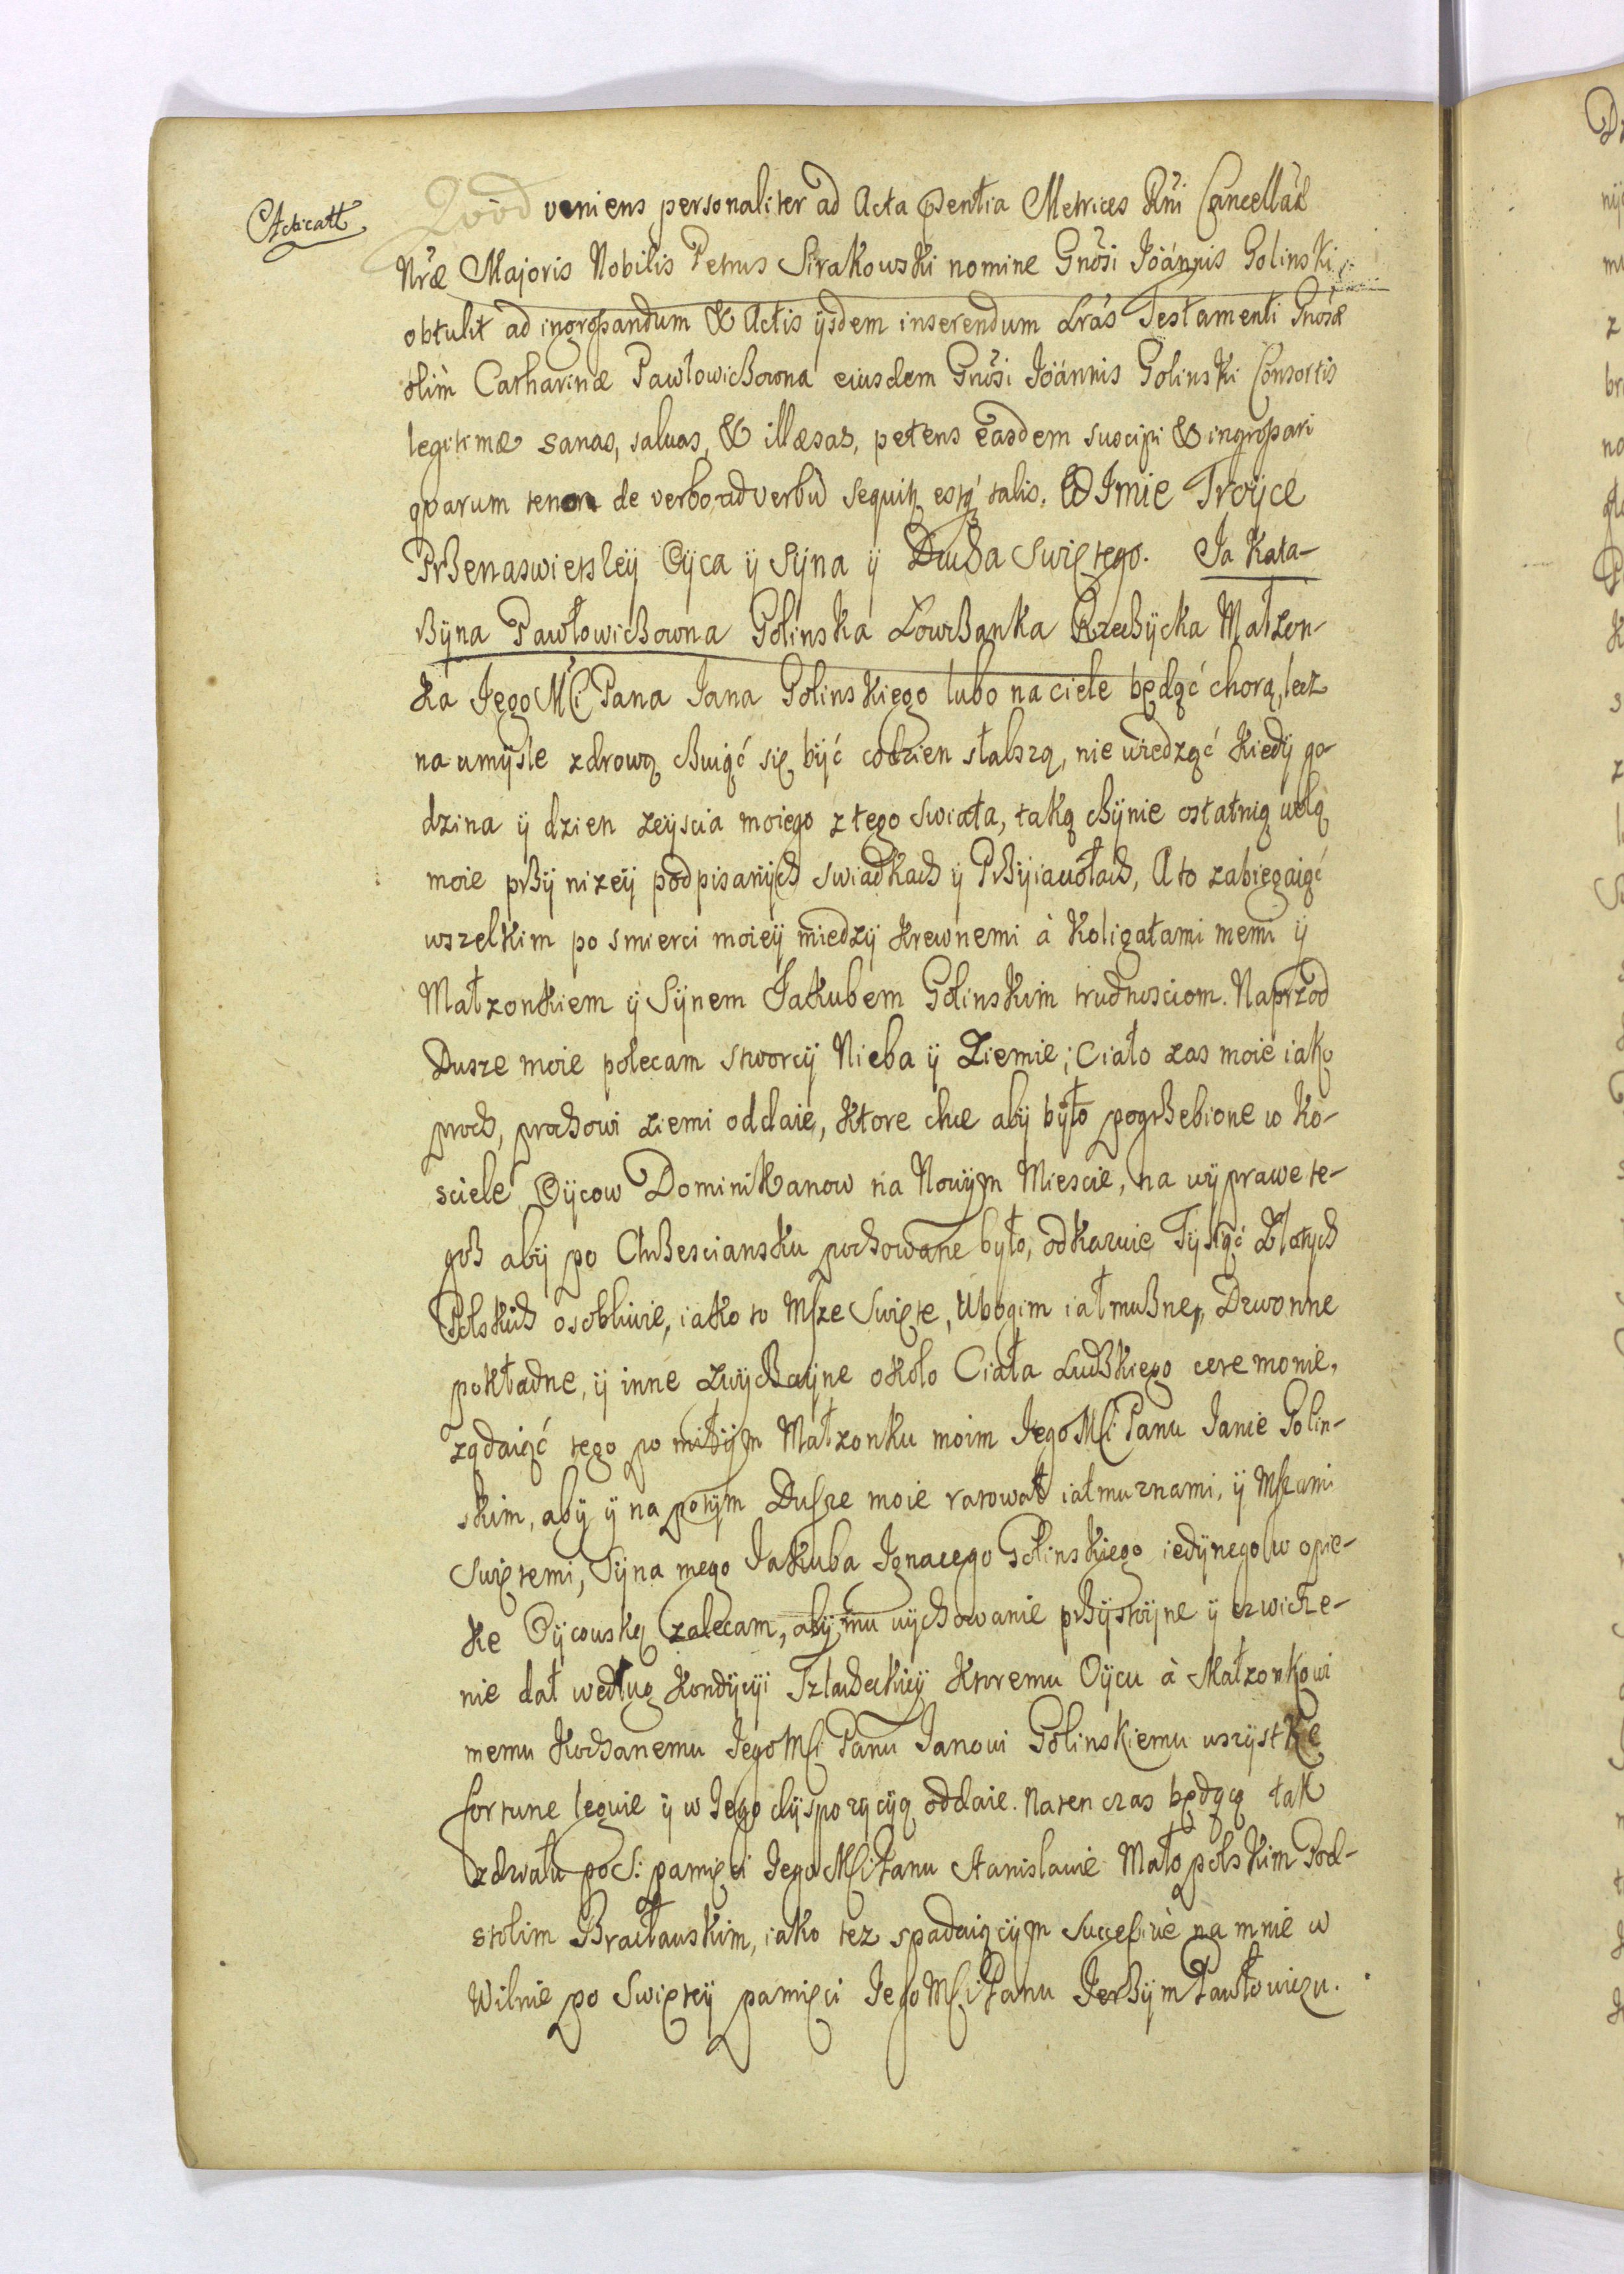 Acticatt
Qvòd veniens personaliter ad Acta pñentia Metrices Rñi Cancellariæ
Nræ Majoris Nobilis Petrus Sirakowski nomine Gnõsi Ioánnis Golinski
obtulit ad ingrossandum & Actis ijsdem inserendum Lrás Testamenti Gnósæ
olim Catharinæ Pawlowiczowna eiusdem Gnõsi Ioánnis Golinski Consortis
legitimæ sanas, saluas, & illæsas, petens easdem suscipi & ingrossari
qvarum tenor de verbo ad verbũ sequit, estq́ talis. W Imie Troÿce
Przenaswietszeÿ Oÿca ÿ Sÿna ÿ Ducha Swiętego. Ja Kata-
rzÿna Pawłowiczowna Golinska Małzon-
ka Jego Mśći Pana Jana Golinskiego lubo na ciele będąć chorą, lecz
na umÿsle zdrową czuiąć się bÿć codzien słabszą, nie wiedząć kiedÿ go-
dzina ÿ dzien zeÿscia moiego z tego swiata, taką czÿnie ostatnią wolą
moie przÿ nizeÿ podpisanÿch swiadkach ÿ Przÿiaciołach, A to zabiegaiąć
wszelkim po smierci moieÿ miedzÿ krewnemi à Koligatami memi ÿ
Małzonkiem ÿ Sÿnem Jakubem Golinskim trudnosciom. Naprzod
Dusze moie polecam stworcÿ Nieba ÿ Ziemie; Ciało zas moie iako
proch, prochowi ziemi oddaie, ktore chce abÿ bÿło pogrzebione w Ko-
sciele Oÿcow Dominikanow na Nowÿm Miescie, na wÿprawe te-
goz abÿ po Chrzesciansku pochowane bÿło, odkazuie Tÿsiąć Złotÿch
Polskich osobliwie, iako to Msze Swięte, Ubogim iałmuzne, Dzwonne
pokładne, ÿ inne zwÿczaÿne około Ciała Ludzkiego ceremonie,
ządaiąć tego po miłÿm Małzonku moim Jego Mśći Panu Janie Golin-
skim, abÿ ÿ na potÿm Dusze moie ratował iałmuznami, ÿ Mszami
Swiętemi, Sÿna mego Jakuba Ignacego Golinskiego iedÿnego w opie-
ke Oÿcowską zalecam, abÿ mu wÿchowanie przÿstoÿne ÿ czwicze-
nie dał według Kondÿcÿi Szlacheckieÿ ktoremu Oÿcu à Małzonkowi
memu kochanemu Jego Mśći Panu Janowi Golinskiemu wszÿstkę
fortune leguie ÿ w Jego dÿspozÿcÿą oddaie. Na ten czas będącą tak
z działu po S: pamięci Jego Mśći Panu Stanislawie Małopolskim Pod-
stolim Bracławskim, iako tez spadaiącÿm Successiue na mnie w
Wilnie po Swięteÿ pamięci Jego Mśći Panu Jerzÿm Pawłowiczu.